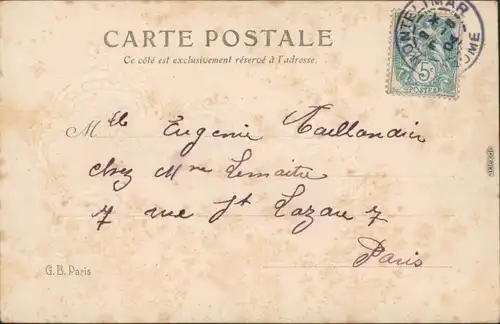 MONTELIMAR
CARTE POSTALE
Ce côté est exclusivement réservé à l'adresse.
5c
POSTES
Mlle Eugenie Taillandier
chez Mme Lemaitre
7 rue St Lazare 7
Paris
G. B. Paris